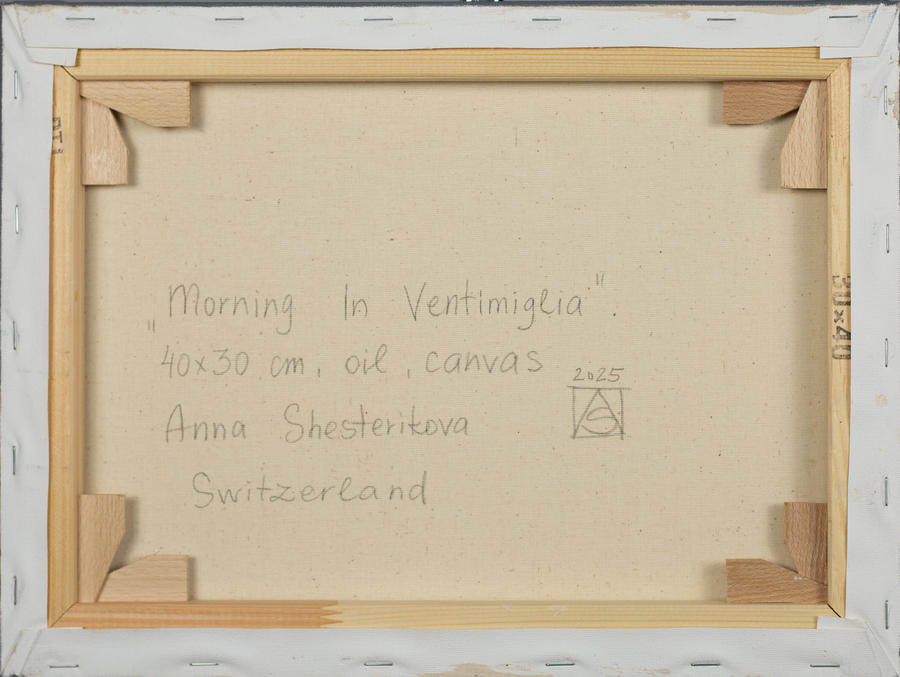 "Morning In Ventimiglia".
40x30 cm, oil, canvas
2025
AS
Anna Shesterikova
Switzerland
30×40